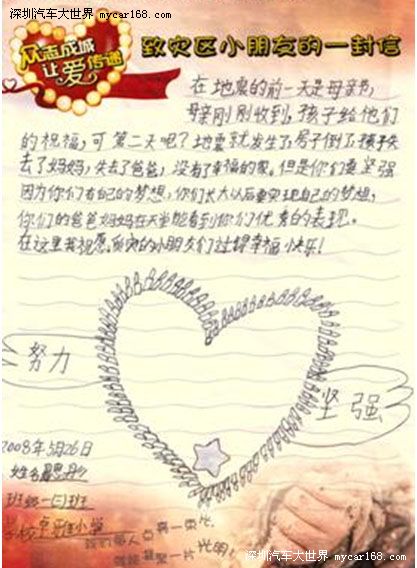 深圳汽车大世界 mycar168.com
众志成城
让爱传递
致灾区小朋友的一封信
在地震的前一天是母亲节,
母亲刚刚收到,孩子给他们
的祝福,可第二天呢?地震就发生了,房子倒了,孩子失
去了妈妈,失去了爸爸,没有了幸福的家。但是你们要坚强
因为你们有自己的梦想,你们长大以后要实现自己的梦想,
你们的爸爸妈妈在天堂能看到你们优秀的表现。
在这里我祝愿,所有的小朋友们过得幸福快乐!
努力
坚强
2008年5月26日
姓名
班级一(1)班
学校 小学
我们每人点亮一
一片光明!
深圳汽车大世界 mycar168.com